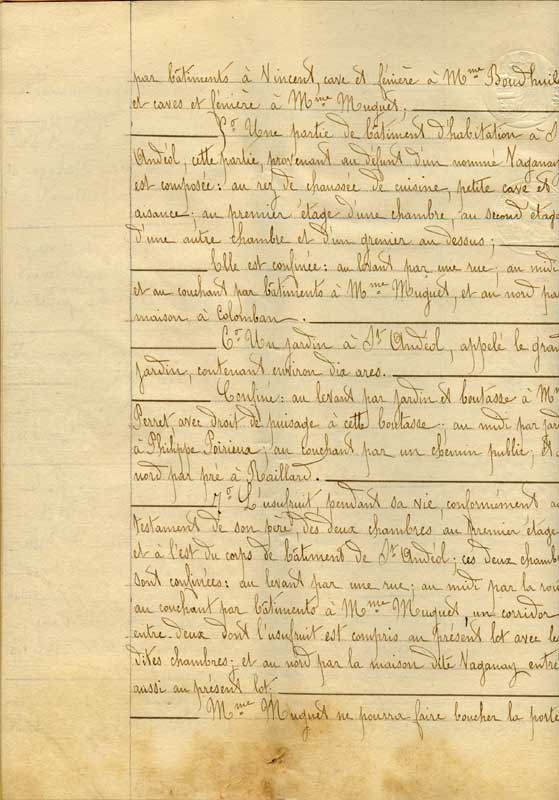 par bâtiments à Vincent, cave et fénière à Mme Boudhuile
et caves et fénière à Mme Muguet;
5o Une partie de bâtiment d'habitation à S
Andéol, cette partie, provenant au défunt d'un nommé Naganay
est composée: au rez de chaussée de cuisine, petite cave et
aisance; au premier étage d'une chambre, au second étage
d'une autre chambre et d'un grenier au dessus;
Elle est confinée: au levant par une rue; au midi
et au couchant par bâtiments à Mme Muguet, et au nord par
maison à Colomban.
6o Un jardin à St Andéol, appelé le grand
jardin, contenant environ dix ares.
Confiné: au levant par jardin et boutasse à M
Perret avec droit de puisage à cette boutasse; au midi par jar
à Philippe Poirieux; au couchant par un chemin public, et
nord par pré à Raillard.
7o L'usufruit, pendant sa vie, conformément
testament de son père, des deux chambres au premier étage
et à l'est du corps de bâtiment de St Andéol; ces deux chamb
sont confinées: au levant par une rue; au midi par la voie
au couchant par bâtiments à Mme Muguet, un corridor
entre deux dont l'usufruit est compris au présent lot avec les
dites chambres; et au nord par la maison dite Naganay entré
aussi au présent lot.
Mme Muguet ne pourra faire boucher la porte